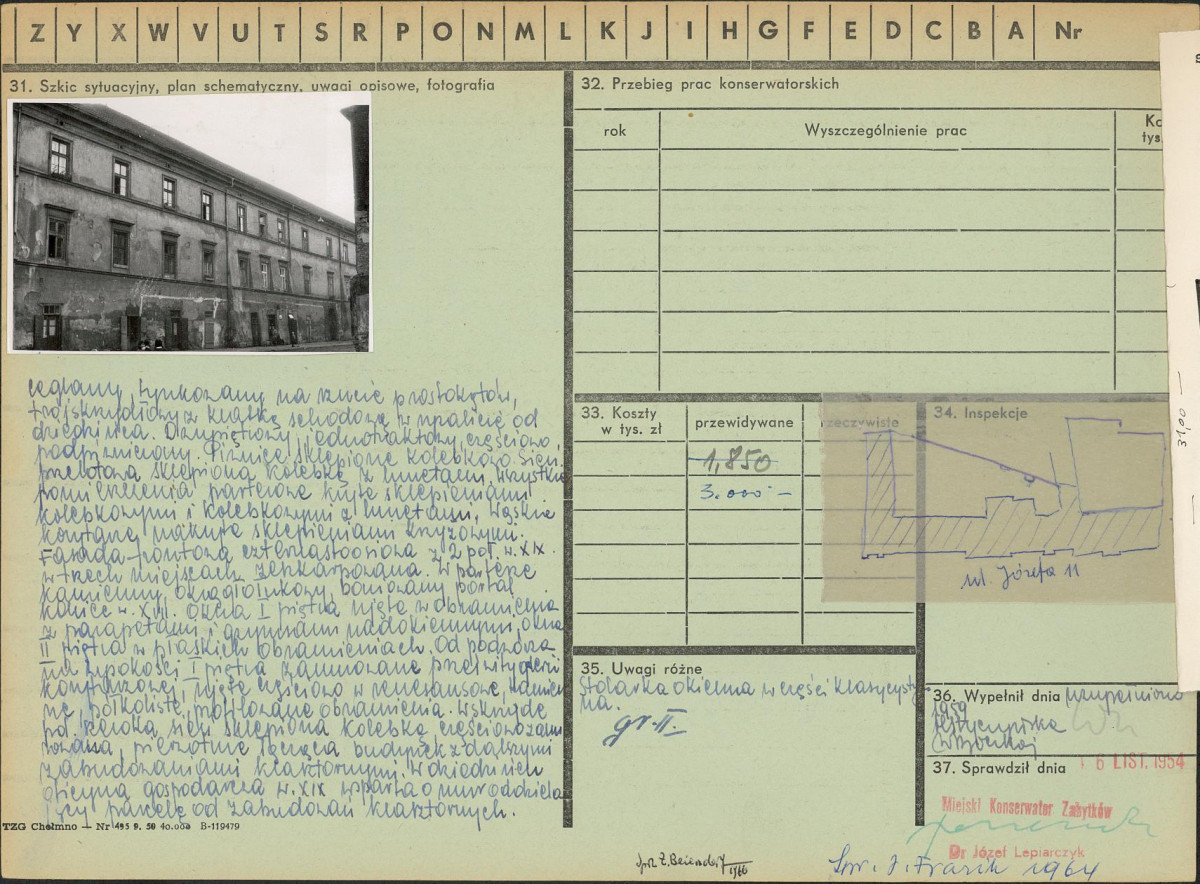 Z Y X W V U T S R P O N M L K J I H G F E D C B A Nr
31. Szkic sytuacyjny, plan schematyczny, uwagi opisowe, fotografia
ceglany, tynkowany na rzucie prostokątów,
trójskrzydłowy z klatką schodową w npalicie od
dziedzińca. Dwupiętrowy, jednotraktowy, częściowo
podpiwniczony. Piwnice sklepione kolebkowo. Sień
przelotowa sklepiona kolebką z lunetami, wszystkie
pomieszczenia parterowe kryte sklepieniami
kolebkowymi i kolebkowymi z lunetami, wąskie
korytarze nakryte sklepieniami krzyżowymi.
Fasada frontowa czternastoosiowa z 2 poł. w. XIX.
w trzech miejscach zeskarpowana. W parterze
kamienny, okrągłołukowy, boniowany portal
koniec w. XVII. Okna I piętra ujęte w obramienia
z parapetami i gzymsami nadokiennymi, okna
II piętra w płaskich obramieniach. Od podwórza
na wysokości I piętra zamurowane prześwity
ujęte częściowo w renesansowe, kamien
ne, półkoliste, profilowane obramienia. W skrzydle
szeroka sień sklepiona kolebką, częściowo zamu
rowana, pierwotnie łącząca budynek z dalszymi
zabudowaniami klasztornymi. W dziedzińcu
oficyna gospodarcza w. XIX wsparta o mur oddziela
jący parcelę od zabudowań klasztornych.
TZG Chełmno — Nr 495 9. 59 40.000 B-119479
32. Przebieg prac konserwatorskich
rok Wyszczególnienie prac Ko
tys.
31,00 —
33. Koszty
w tys. zł
przewidywane
rzeczywiste
1,850
3.000 —
34. Inspekcje
ul. Józefa 11
35. Uwagi różne
Stolarka okienna w części klasycysty
na.
gr. II.
36. Wypełnił dnia uzupełniono
1959
37. Sprawdził dnia
6 LIST. 1954
Miejski Konserwator Zabytków
Dr Józef Lepiarczyk
Spr. Z. Beiersdorf 1966
Spr. J. Frazik 1964